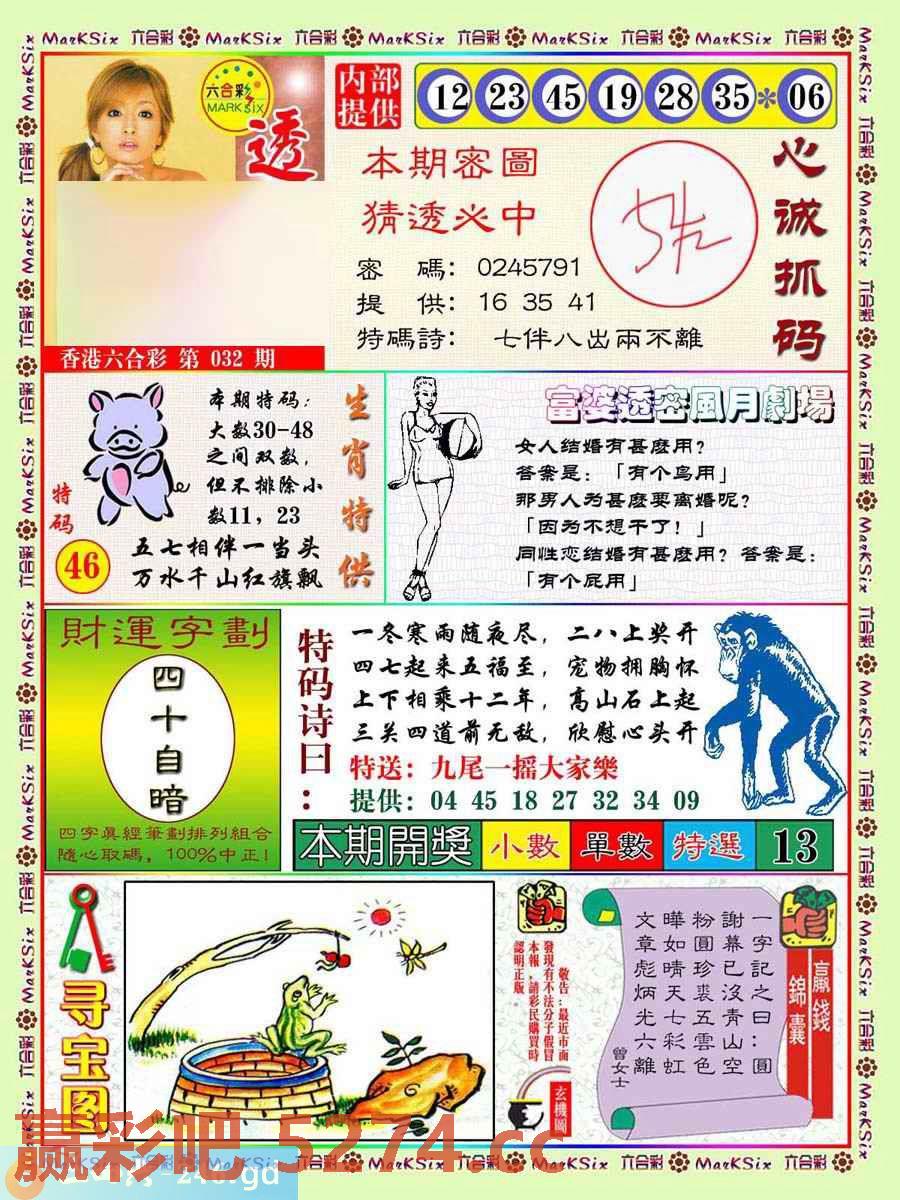 MarKSix 六合彩 MarKSix 六合彩 MarKSix 六合彩 MarKSix 六合彩 MarKSix 六合彩
六合彩
MARKSIX
透
香港六合彩 第 032 期
内部
提供
12 23 45 19 28 35 * 06
本期密圖
猜透必中
密 碼: 0245791
提 供: 16 35 41
特碼詩: 七伴八出兩不離
心诚抓码
特码
46
本期特码:
大数30-48
之间双数,
但不排除小
数11, 23
五七相伴一当头
万水千山红旗飘
生肖特供
富婆透密風月劇場
女人结婚有甚麽用?
答案是: 「有个鸟用」
那男人为甚麽要离婚呢?
「因为不想干了! 」
同性恋结婚有甚麽用? 答案是:
「有个屁用」
財運字劃
四十自暗
四字眞經筆劃排列組合
隨心取碼, 100%中正!
特码诗曰:
一冬寒雨随夜尽, 二八上奖开
四七起来五福至, 宠物拥胸怀
上下相乘十二年, 高山石上起
三关四道前无敌, 欣慰心头开
特送: 九尾一摇大家樂
提供: 04 45 18 27 32 34 09
本期開獎 小數 單數 特選 13
寻宝图
敬告:最近市面
發現有不法分子假冒
本報,請彩民購買時
認明正版。
玄機圖
贏錢
錦囊
一字記之曰:圓
謝幕已沒青山空
粉圓珍裘五雲色
曄如晴天七彩虹
文章彪炳光六離
曾女士
赢彩吧 5274.cc
MarKSix 六合彩 MarKSix 六合彩 MarKSix 六合彩 MarKSix 六合彩 MarKSix 六合彩